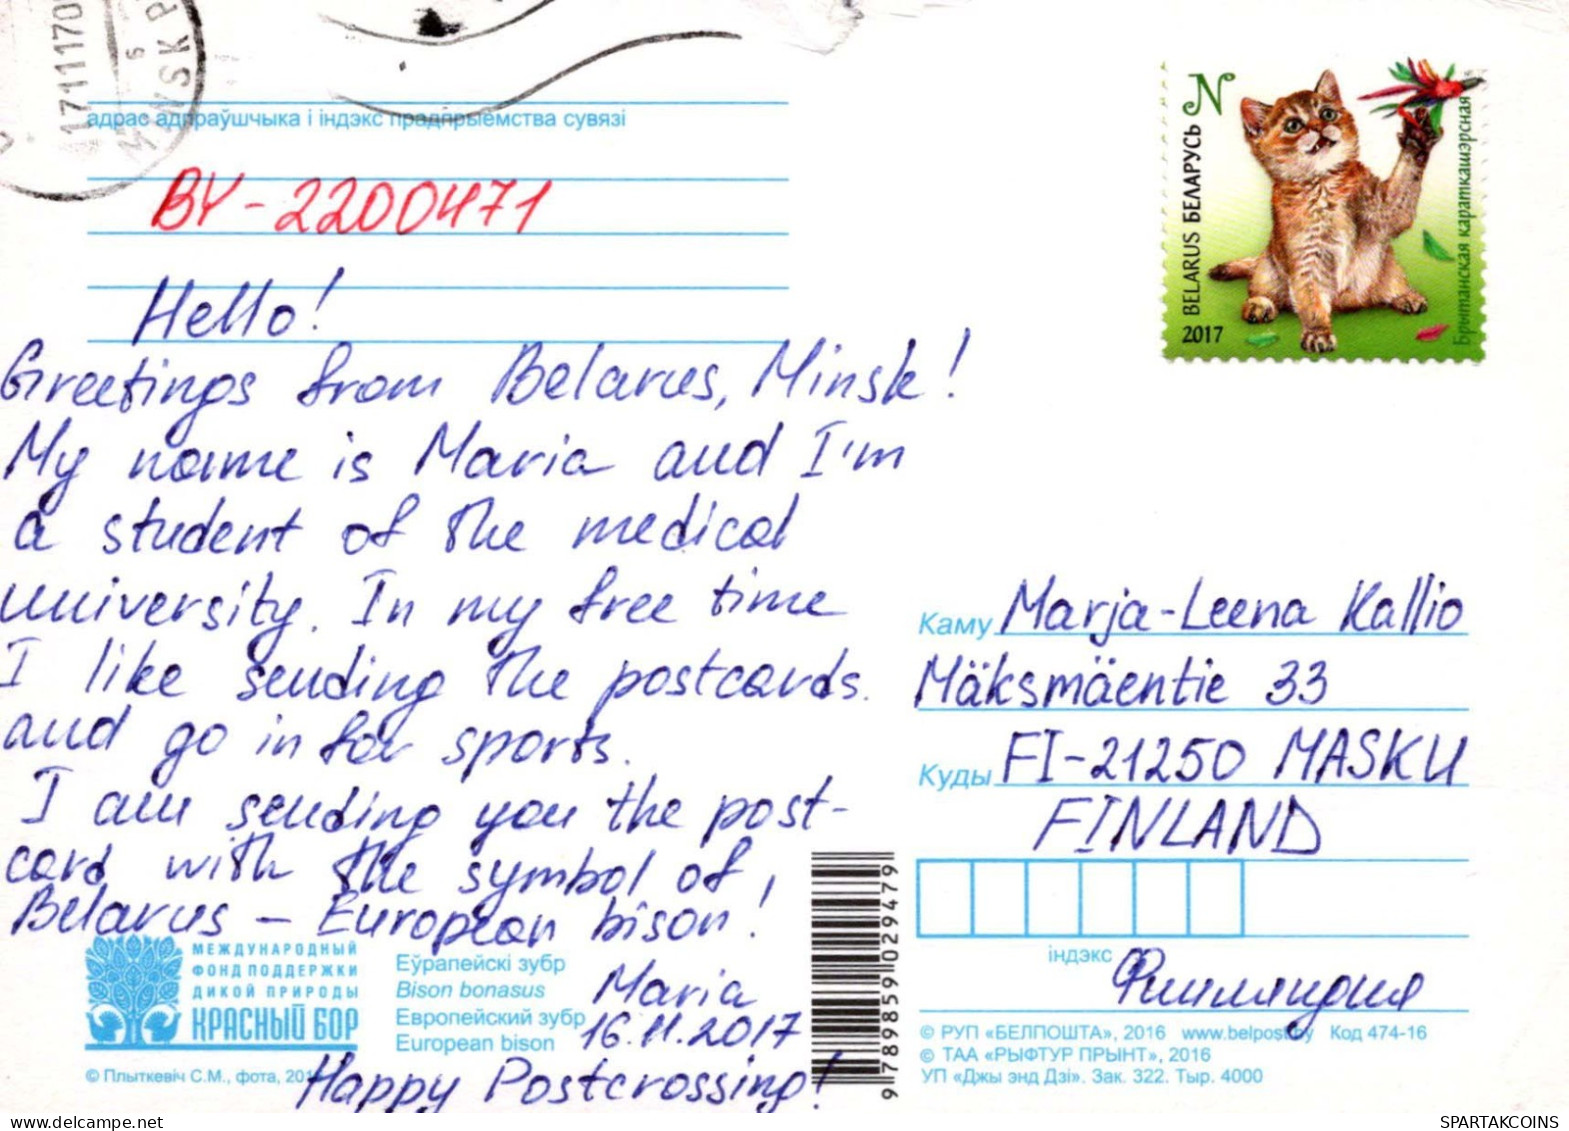 171117
MINSK
адрас адпраўшчыка і індэкс прадпрыемства сувязі
BY-2200471
Hello!
Greetings from Belarus, Minsk!
My name is Maria and I'm
a student of the medical
university. In my free time
I like sending the postcards.
and go in for sports.
I am sending you the post-
card with the symbol of
Belarus – European bison!
Maria
16.11.2017
Happy Postcrossing!
МЕЖДУНАРОДНЫЙ
ФОНД ПОДДЕРЖКИ
ДИКОЙ ПРИРОДЫ
КРАСНЫЙ БОР
Еўрапейскі зубр
Bison bonasus
Европейский зубр
European bison
© Плыткевіч С.М., фота, 201
9 789859 029479
N
BELARUS БЕЛАРУСЬ
2017
Брытанская караткашэрсная
Каму Marja-Leena Kallio
Mäksmäentie 33
Куды FI-21250 MASKU
FINLAND
індэкс
Финляндия
© РУП «БЕЛПОШТА», 2016 www.belpost.by Код 474-16
© ТАА «РЫФТУР ПРЫНТ», 2016
УП «Джы энд Дзі». Зак. 322. Тыр. 4000
SPARTAKCOINS
delcampe.net